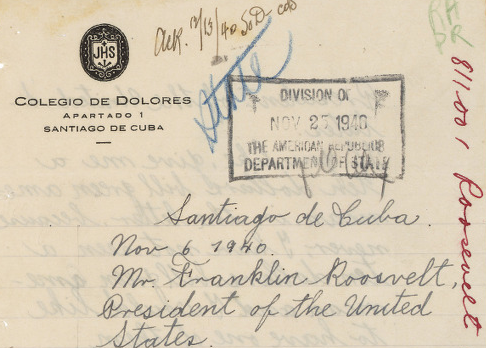 Ack. 12/13/40 SoD COO
JHS
COLEGIO DE DOLORES
APARTADO 1
SANTIAGO DE CUBA
State
RA
DR
811.001 Roosevelt
DIVISION OF
NOV 25 1940
THE AMERICAN REPUBLICS
DEPARTMENT OF STATE
Santiago de Cuba.
Nov 6 1940.
Mr. Franklin Roosvelt,
President of the United
States.